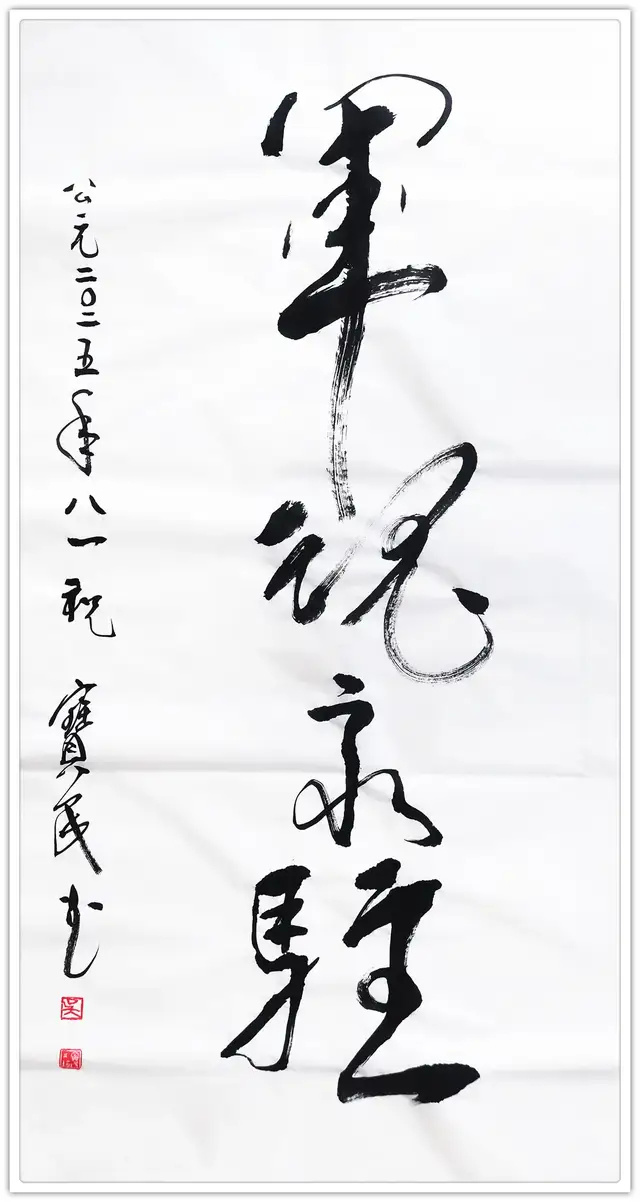 軍魂永駐
公元二〇二五年八一祝 寶民书
吴